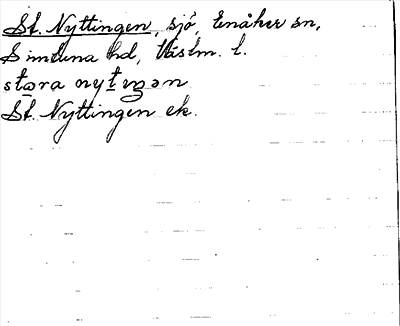 St. Nyttingen, sjö, Enåker sn,
Simtuna hd, Västm. l.
stora nytiŋən
St. Nyttingen ek.